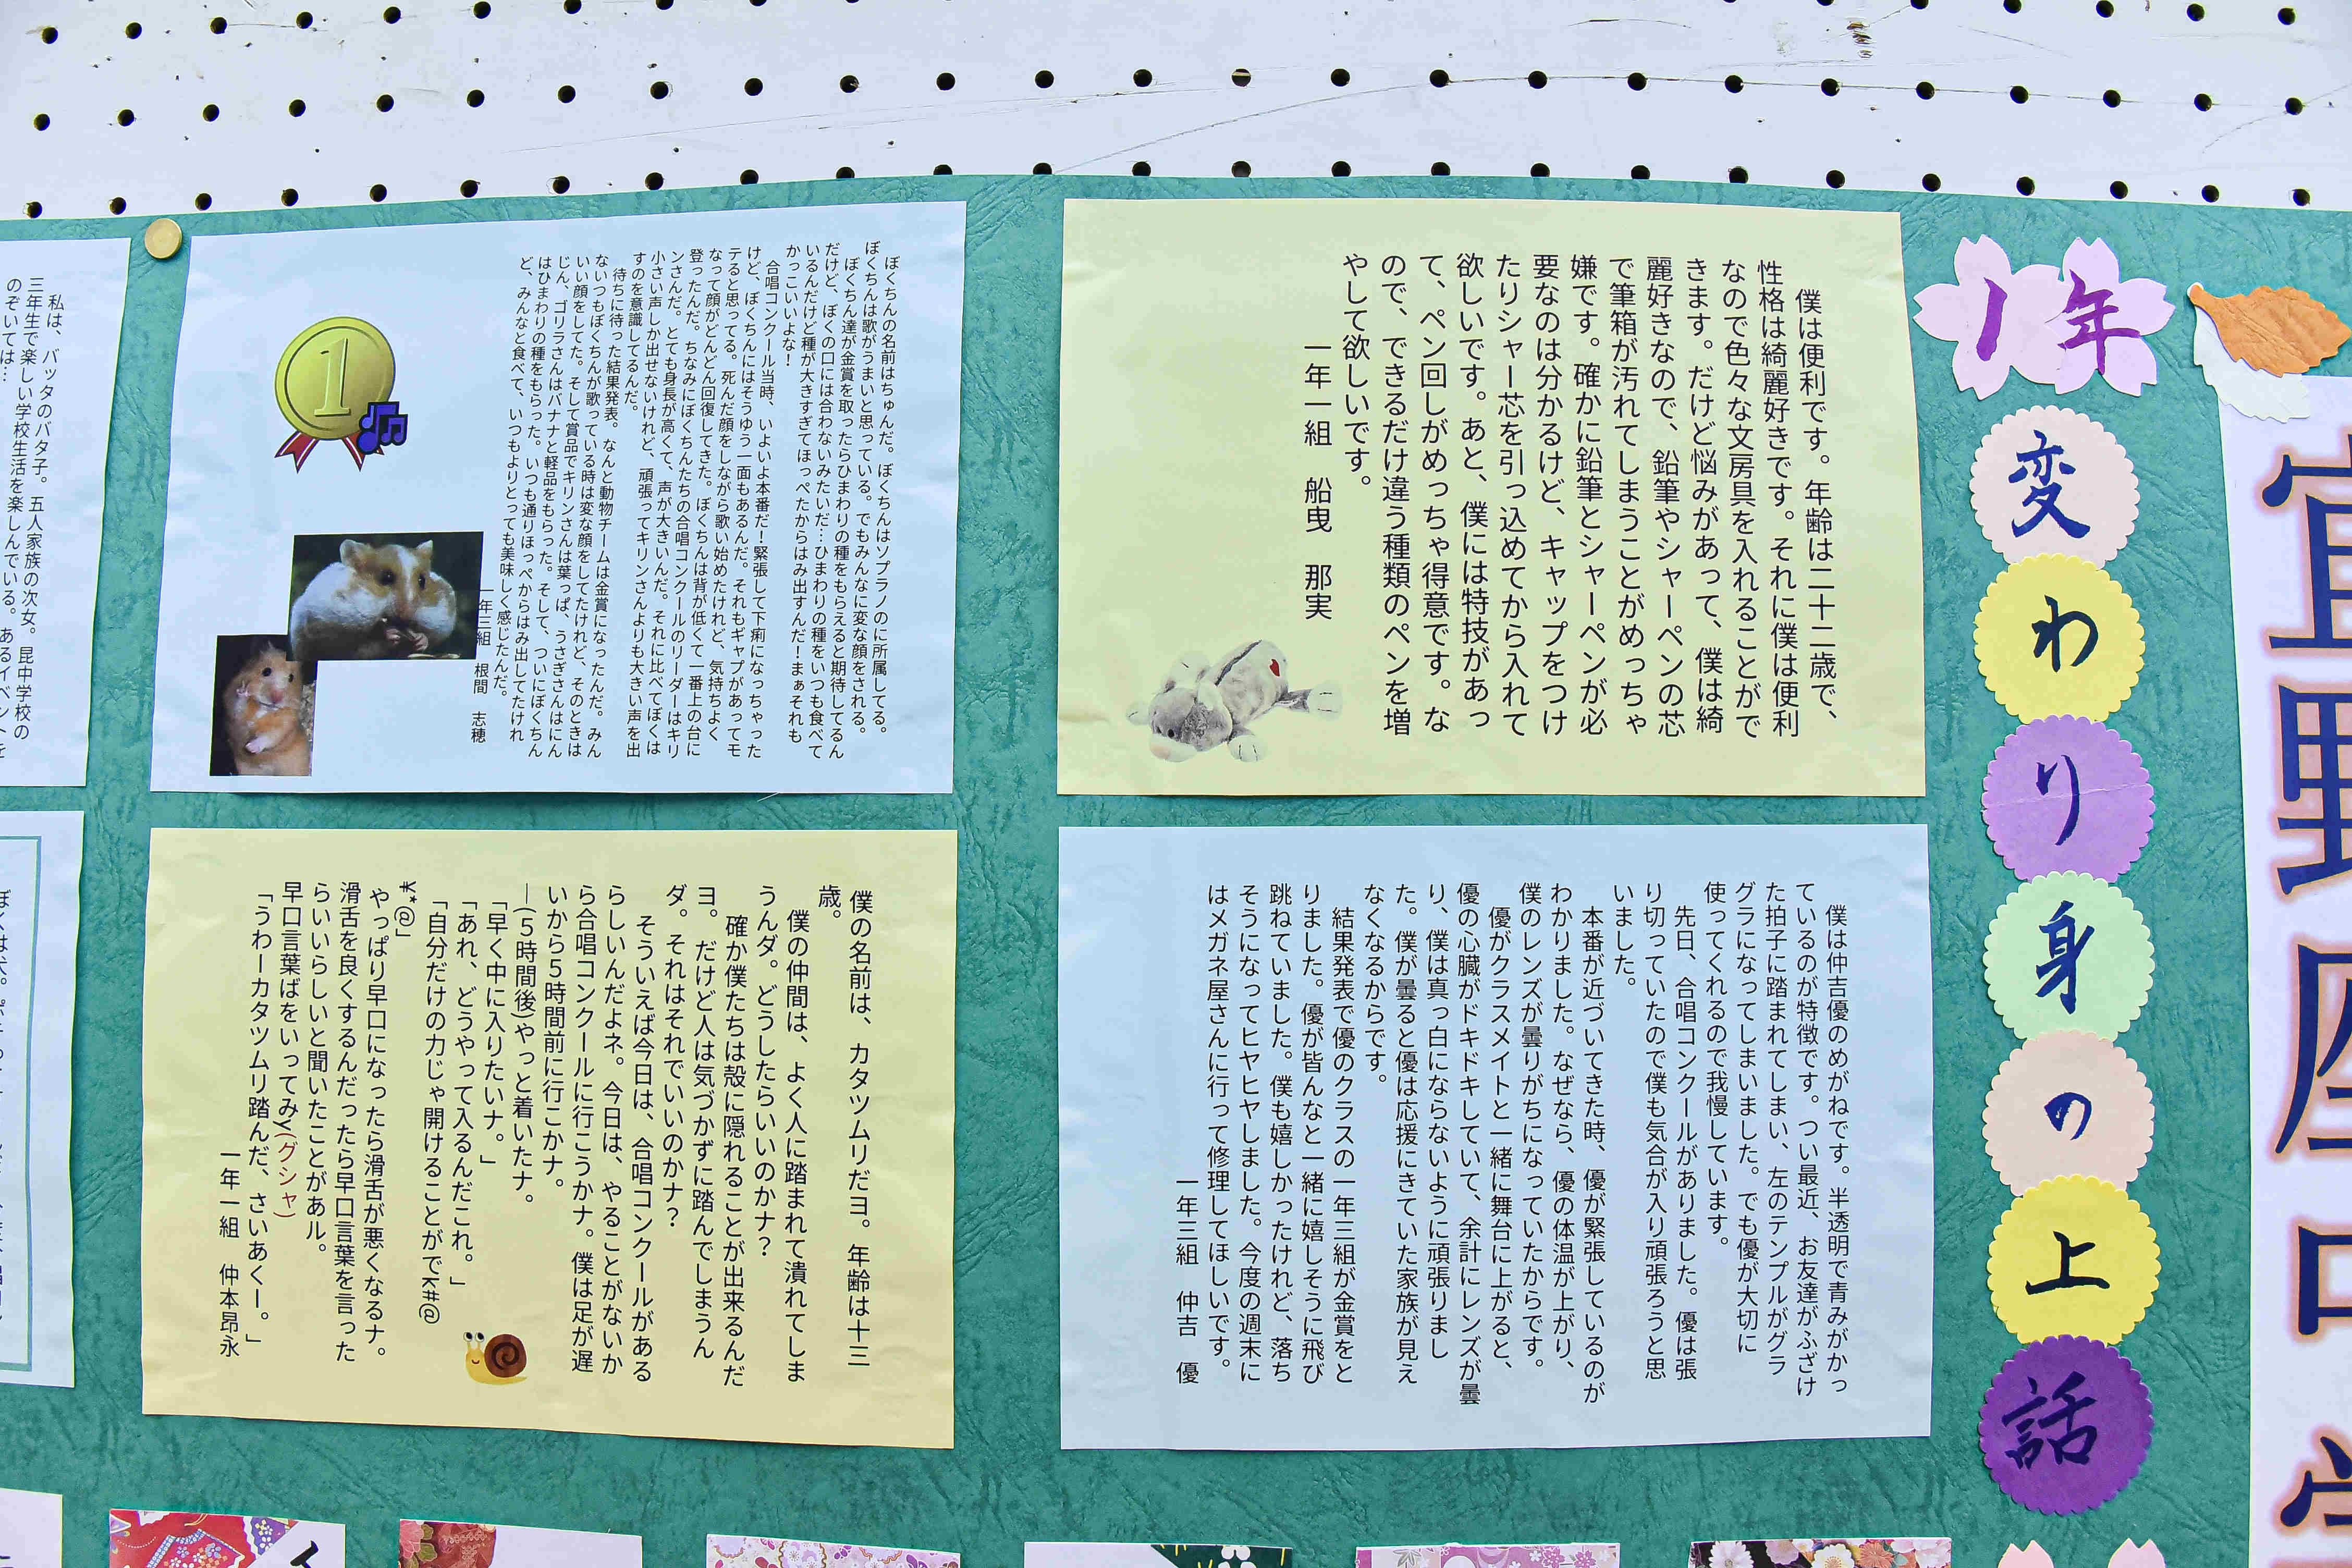 宜野座中学
1年
変わり身の上話
僕は便利です。年齢は二十二歳で、
性格は綺麗好きです。それに僕は便利
なので色々な文房具を入れることがで
きます。だけど悩みがあって、僕は綺
麗好きなので、鉛筆やシャーペンの芯
で筆箱が汚れてしまうことがめっちゃ
嫌です。確かに鉛筆とシャーペンが必
要なのは分かるけど、キャップをつけ
たりシャー芯を引っ込めてから入れて
欲しいです。あと、僕には特技があっ
て、ペン回しがめっちゃ得意です。な
ので、できるだけ違う種類のペンを増
やして欲しいです。
一年一組 船曳 那実
僕は仲吉優のめがねです。半透明で青みがかっ
ているのが特徴です。つい最近、お友達がふざけ
た拍子に踏まれてしまい、左のテンプルがグラ
グラになってしまいました。でも優が大切に
使ってくれるので我慢しています。
先日、合唱コンクールがありました。優は張
り切っていたので僕も気合が入り頑張ろうと思
いました。
本番が近づいてきた時、優が緊張しているのが
わかりました。なぜなら、優の体温が上がり、
僕のレンズが曇りがちになっていたからです。
優がクラスメイトと一緒に舞台に上がると、
優の心臓がドキドキしていて、余計にレンズが曇
り、僕は真っ白にならないように頑張りまし
た。僕が曇ると優は応援にきていた家族が見え
なくなるからです。
結果発表で優のクラスの一年三組が金賞をと
りました。優が皆んなと一緒に嬉しそうに飛び
跳ねていました。僕も嬉しかったけれど、落ち
そうになってヒヤヒヤしました。今度の週末に
はメガネ屋さんに行って修理してほしいです。
一年三組 仲吉 優
ぼくちんの名前はちゅんだ。ぼくちんはソプラノのに所属してる。
ぼくちんは歌がうまいと思っている。でもみんなに変な顔をされる。
ぼくちん達が金賞を取ったらひまわりの種をもらえると期待してるん
だけど、ぼくの口には合わないみたいだ…ひまわりの種をいつも食べて
いるんだけど種が大きすぎてほっぺたからはみ出すんだ！まぁそれも
かっこいいよな！
合唱コンクール当時、いよいよ本番だ！緊張して下痢になっちゃった
けど、ぼくちんにはそうゆう一面もあるんだ。それもギャップがあってモ
テると思ってる。死んだ顔をしながら歌い始めたけれど、気持ちよく
なって顔がどんどん回復してきた。ぼくちんは背が低くて一番上の台に
登ったんだ。ちなみにぼくちんたちの合唱コンクールのリーダーはキリ
ンさんだ。とても身長が高くて、声が大きいんだ。それに比べてぼくは
小さい声しか出せないけれど、頑張ってキリンさんよりも大きい声を出
すのを意識してるんだ。
待ちに待った結果発表。なんと動物チームは金賞になったんだ。みん
ないつもぼくちんが歌っている時は変な顔をしてたけれど、そのときは
いい顔をしてた。そして賞品でキリンさんは葉っぱ、うさぎさんはにん
じん、ゴリラさんはバナナと軽品をもらった。そして、ついにぼくちん
はひまわりの種をもらった。いつも通りほっぺからはみ出してたけれ
ど、みんなと食べて、いつもよりとっても美味しく感じたんだ。
一年三組 根間 志穂
1
僕の名前は、カタツムリだヨ。年齢は十三
歳。
僕の仲間は、よく人に踏まれて潰れてしま
うんダ。どうしたらいいのかナ？
確か僕たちは殻に隠れることが出来るんだ
ヨ。だけど人は気づかずに踏んでしまうん
ダ。それはそれでいいのかナ？
そういえば今日は、合唱コンクールがある
らしいんだよネ。今日は、やることがないか
ら合唱コンクールに行こうかナ。僕は足が遅
いから５時間前に行こかナ。
―(５時間後)やっと着いたナ。
「早く中に入りたいナ。」
「あれ、どうやって入るんだこれ。」
「自分だけの力じゃ開けることがでk#@
¥*@」
やっぱり早口になったら滑舌が悪くなるナ。
滑舌を良くするんだったら早口言葉を言った
らいいらしいと聞いたことがあル。
早口言葉ばをいってみy(グシャ)
「うわーカタツムリ踏んだ、さいあくー。」
一年一組 仲本昂永
私は、バッタのバタ子。五人家族の次女。昆中学校の
三年生で楽しい学校生活を楽しんでいる。あるイベントを
のぞいては…